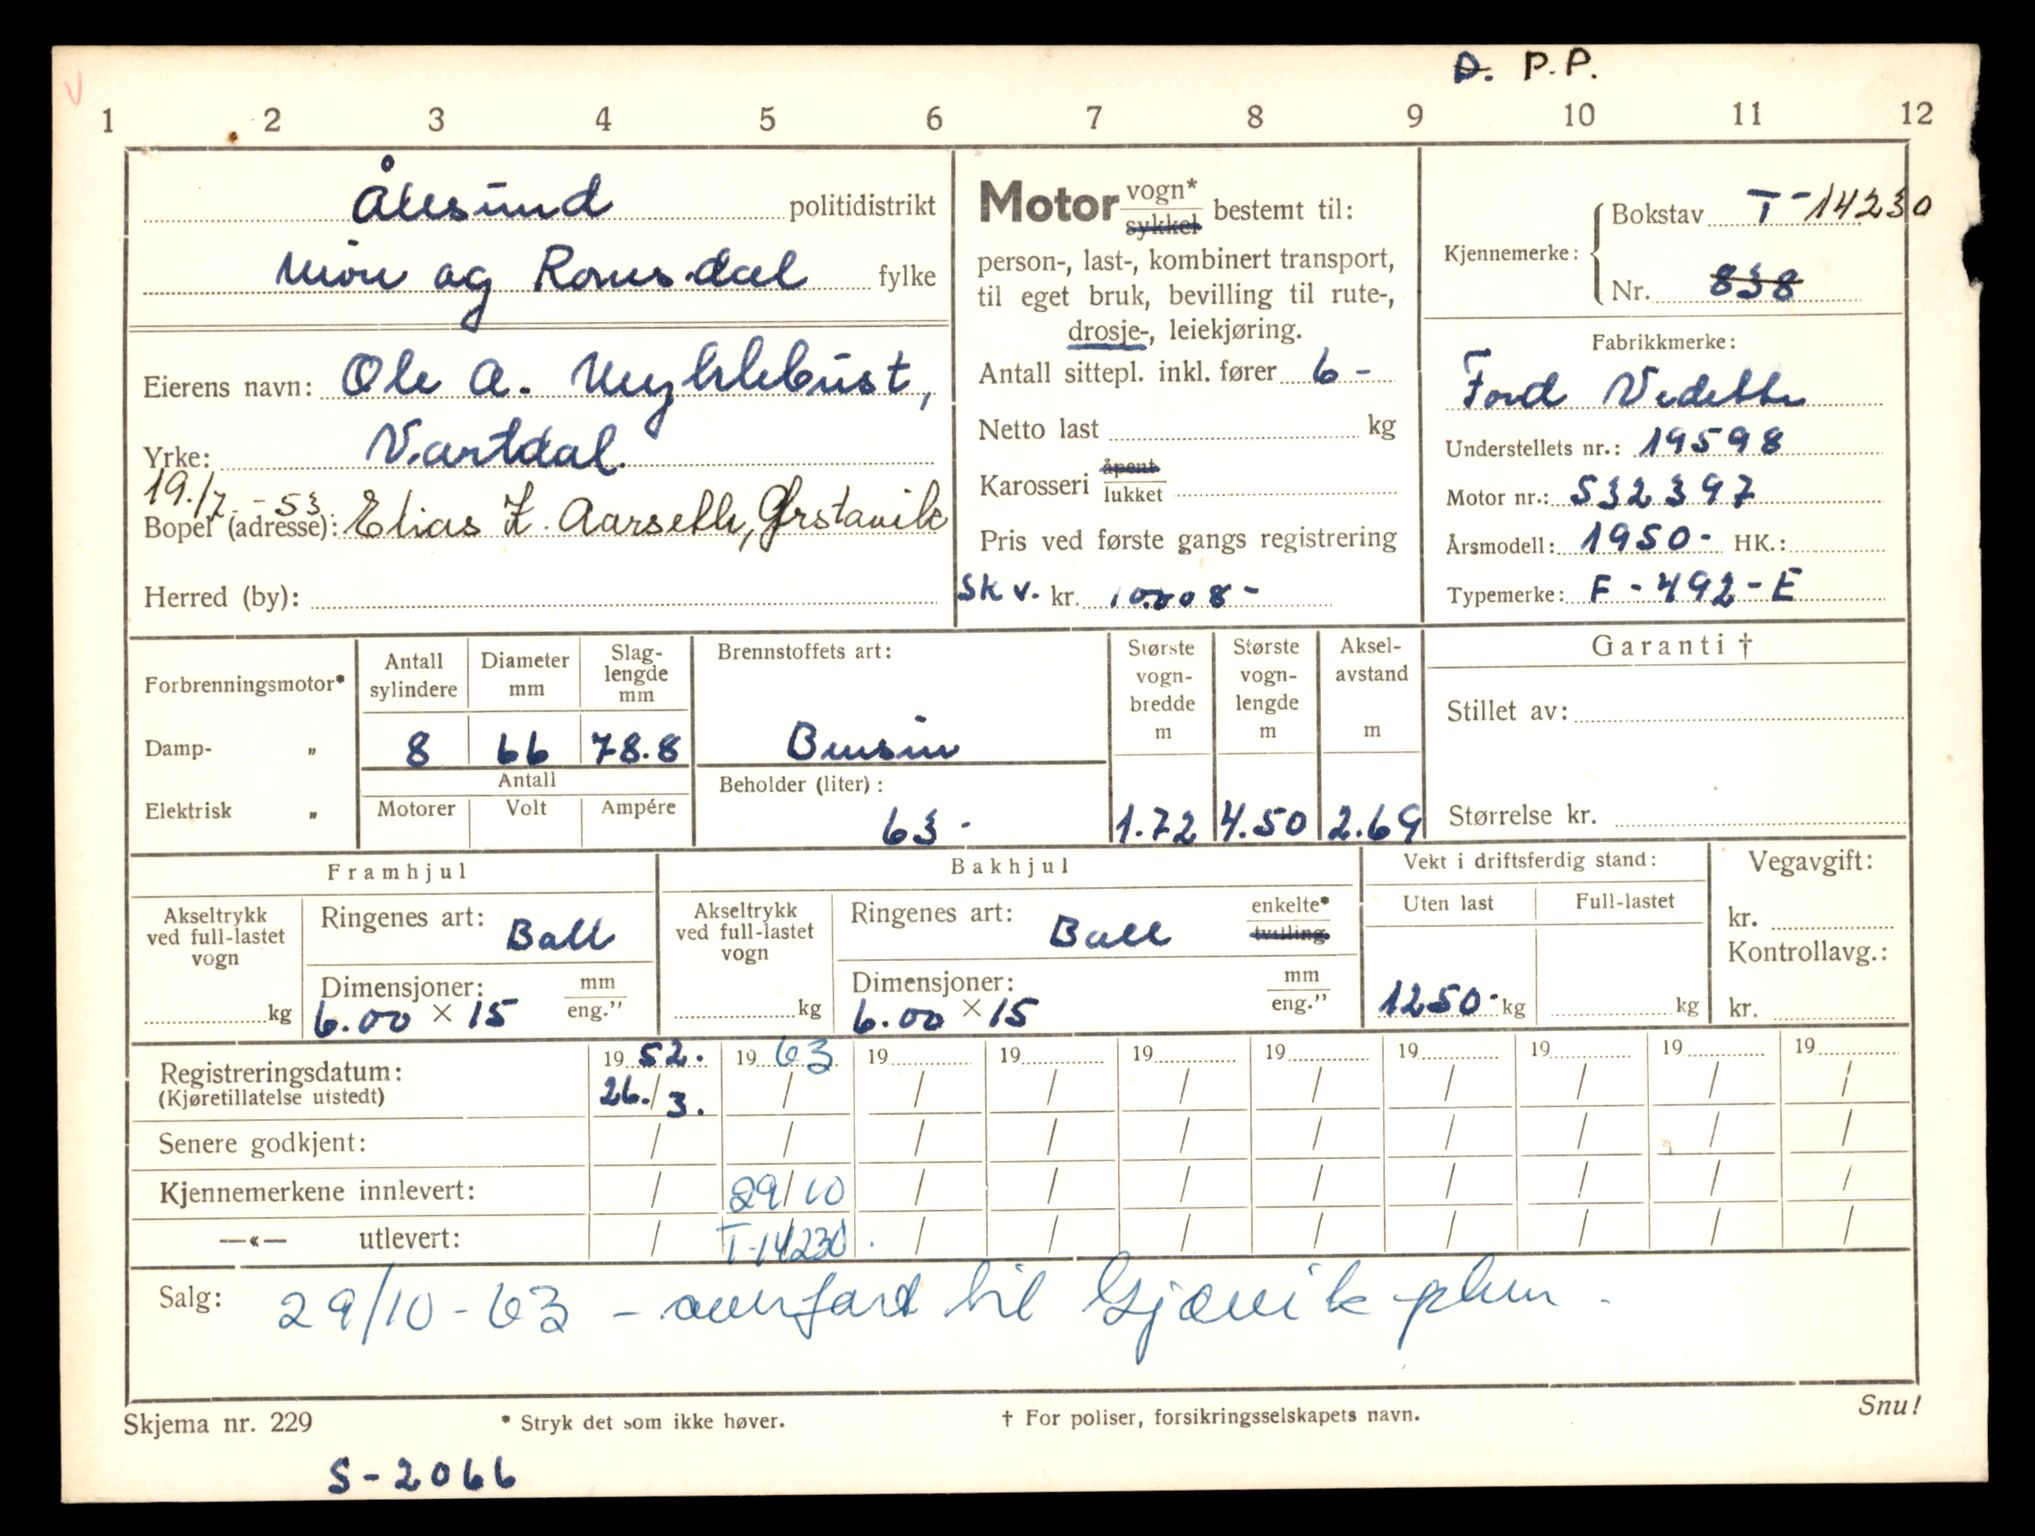 D. P.P.
1 2 3 4 5 6 7 8 9 10 11 12
Ålesund politidistrikt
Møre og Romsdal fylke
Eierens navn: Ole A. Myklebust,
Yrke: Vartdal.
19./7.-53
Bopel (adresse): Elias K. Aarseth, Ørstavik
Herred (by):
Motor vogn* sykkel bestemt til:
person-, last-, kombinert transport,
til eget bruk, bevilling til rute-,
drosje-, leiekjøring.
Antall sittepl. inkl. fører 6 -
Netto last kg
Karosseri åpent lukket
Pris ved første gangs registrering
Sk v. kr. 10.008-
Kjennemerke: Bokstav T-14230
Nr. 838
Fabrikkmerke:
Ford Vedette
Understellets nr.: 19598
Motor nr.: 532397
Årsmodell: 1950- HK.:
Typemerke: F-492-E
Forbrenningsmotor*
Damp- "
Elektrisk "
Antall sylindere
8
Diameter mm
66
Slaglengde mm
78.8
Antall
Motorer Volt Ampére
Brennstoffets art:
Bensin
Beholder (liter):
63-
Største vognbredde m
1.72
Største vognlengde m
4.50
Akselavstand m
2.69
Garanti †
Stillet av:
Størrelse kr.
Framhjul
Akseltrykk ved full-lastet vogn
kg
Ringenes art: Ball
Dimensjoner: mm eng."
6.00 × 15
Bakhjul
Akseltrykk ved full-lastet vogn
kg
Ringenes art: Ball enkelte* tvilling
Dimensjoner: mm eng."
6.00 × 15
Vekt i driftsferdig stand:
Uten last Full-lastet
1250- kg kg
Vegavgift:
kr.
Kontrollavg.:
kr.
Registreringsdatum: 1952. 1963 19 19 19 19 19 19 19 19
(Kjøretillatelse utstedt) 26./3. / / / / / / / / /
Senere godkjent: / / / / / / / / / /
Kjennemerkene innlevert: / 29/10 / / / / / / / /
—«— utlevert: / T-14230. / / / / / / / /
Salg: 29/10-63 - overført til Gjøvik plum.
Skjema nr. 229 * Stryk det som ikke høver. † For poliser, forsikringsselskapets navn. Snu!
S-2066